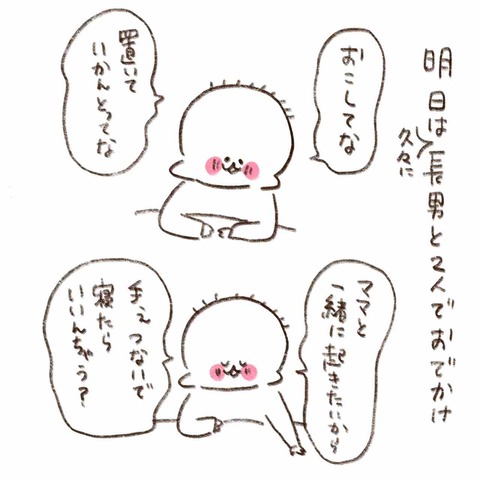 明日は久々に長男と2人でおでかけ
おこしてな
置いて
いかんとってな
ママと
一緒に起きたいから
手ぇつないで
寝たら
いいんちゃう?